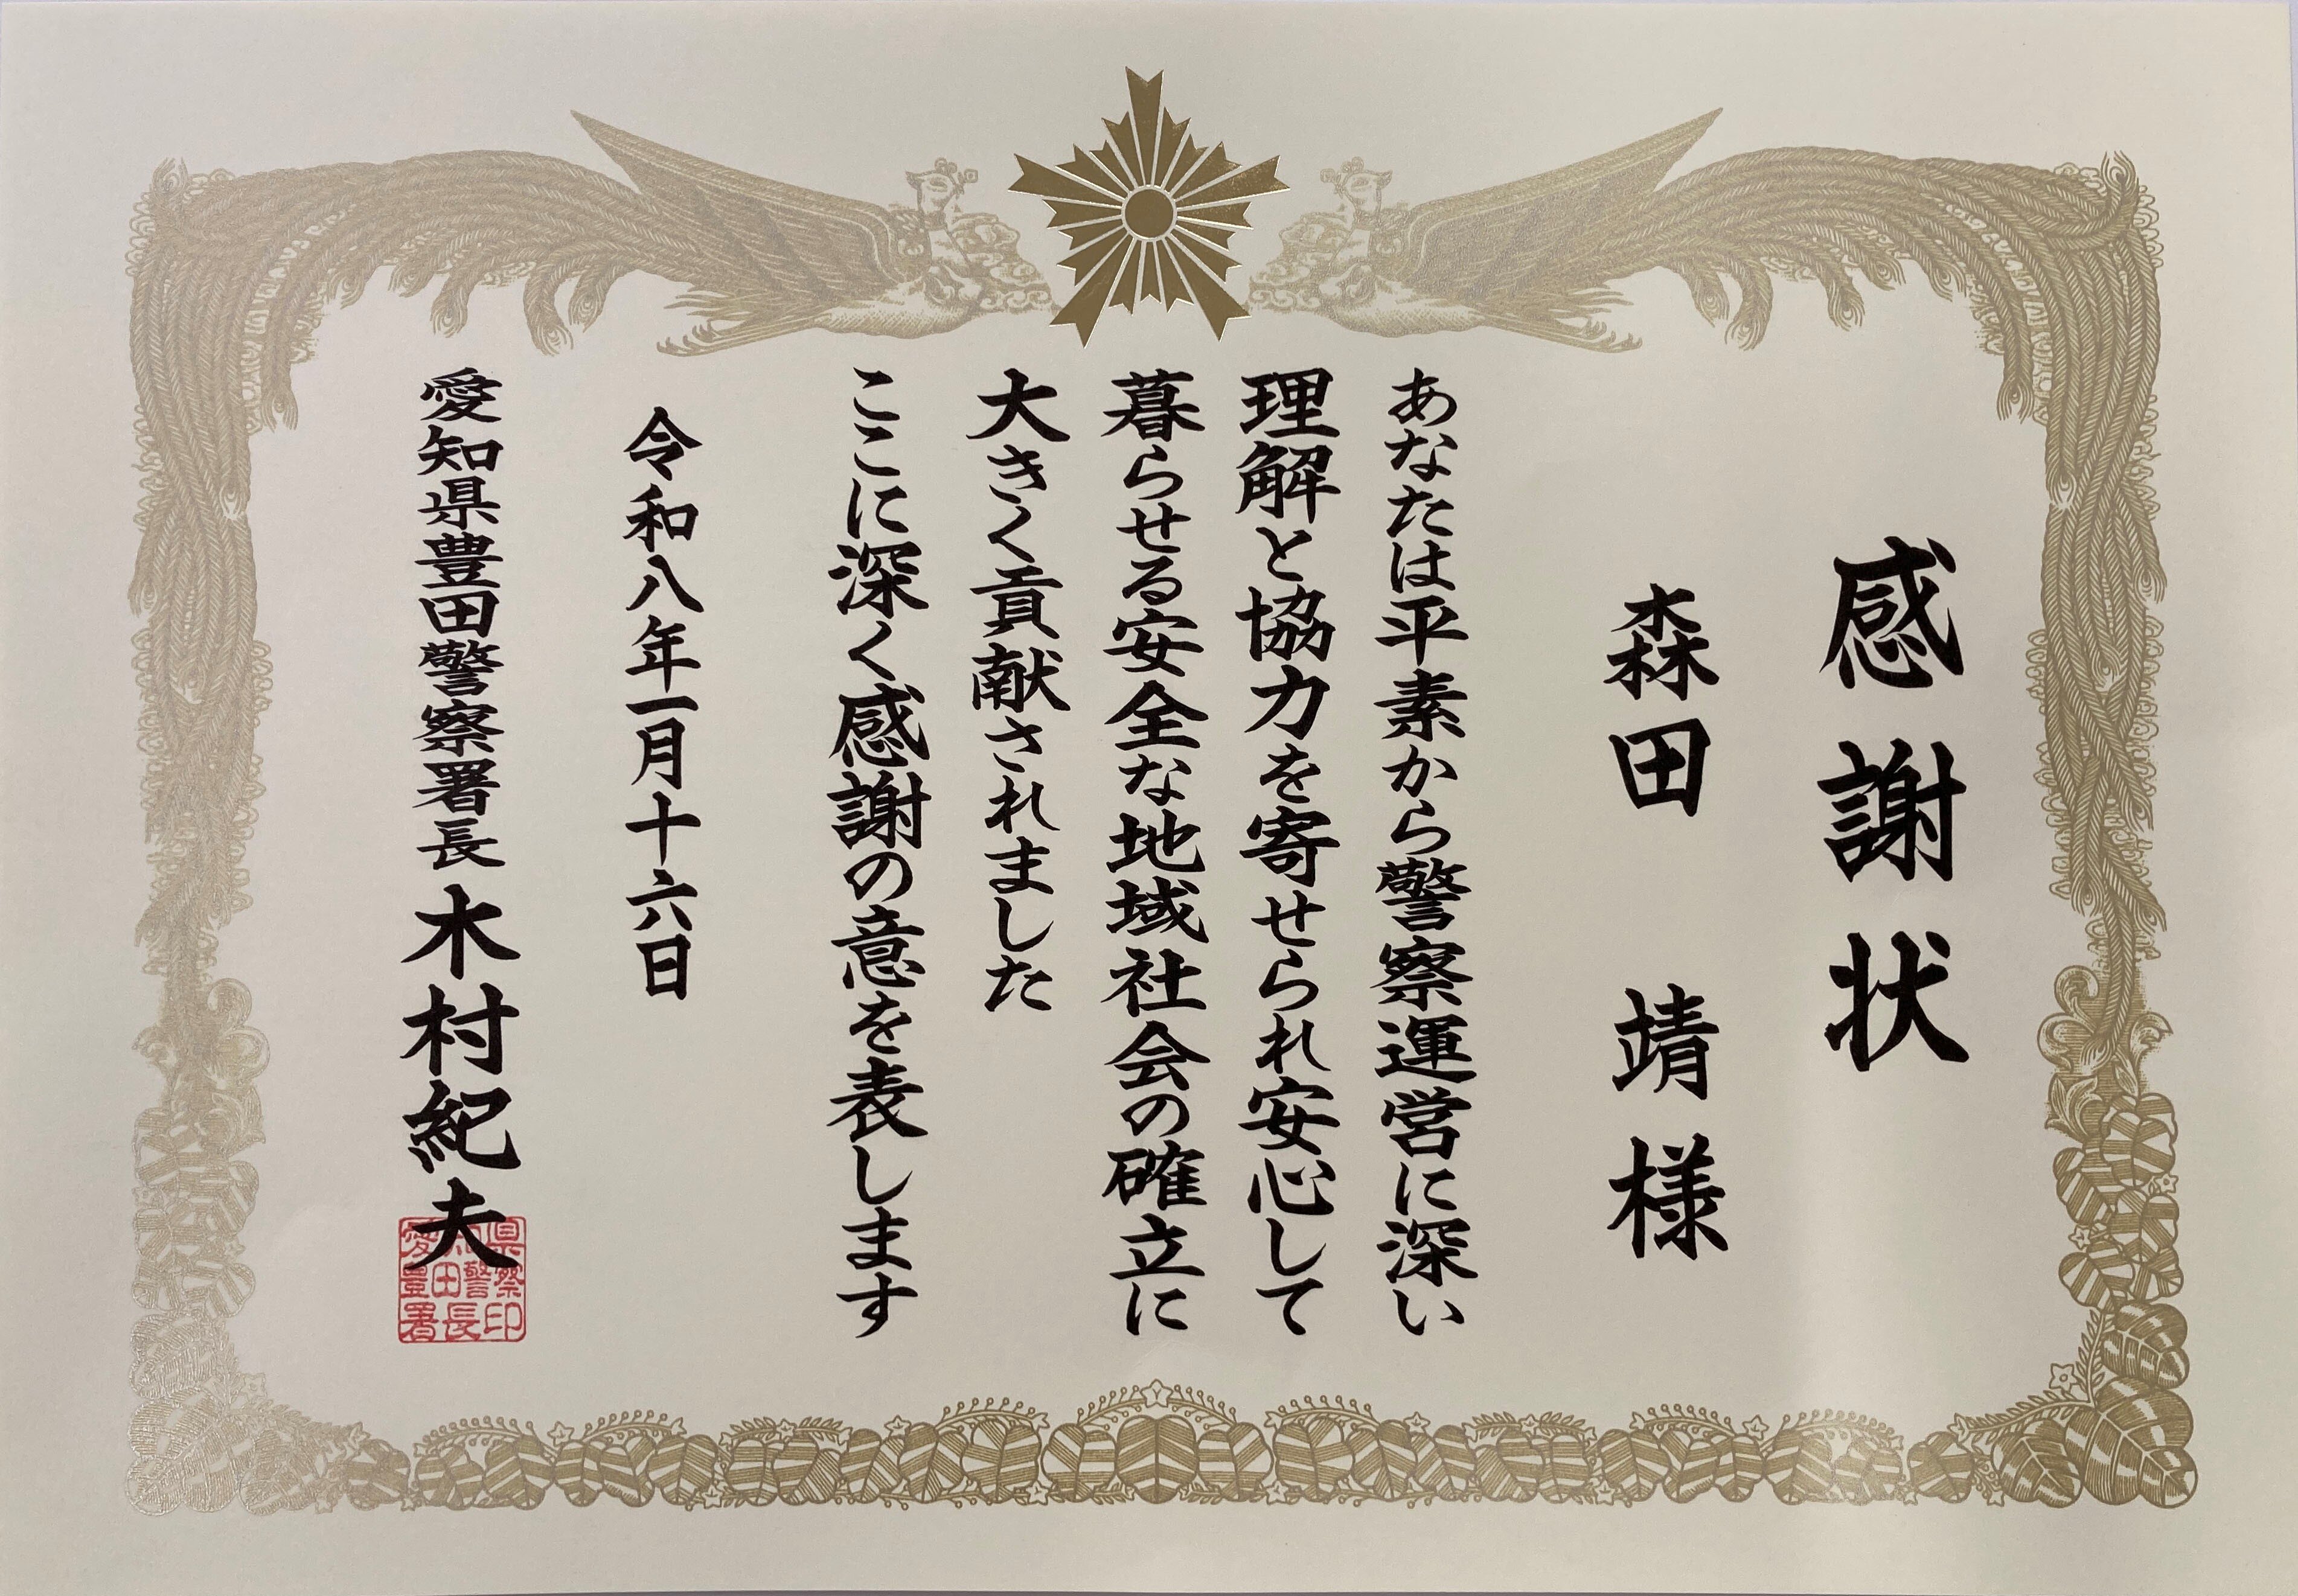 感謝状
森田 靖 様
あなたは平素から警察運営に深い
理解と協力を寄せられ安心して
暮らせる安全な地域社会の確立に
大きく貢献されました
ここに深く感謝の意を表します
令和八年一月十六日
愛知県豊田警察署長 木村紀夫
愛知県
豊田警察
署長印